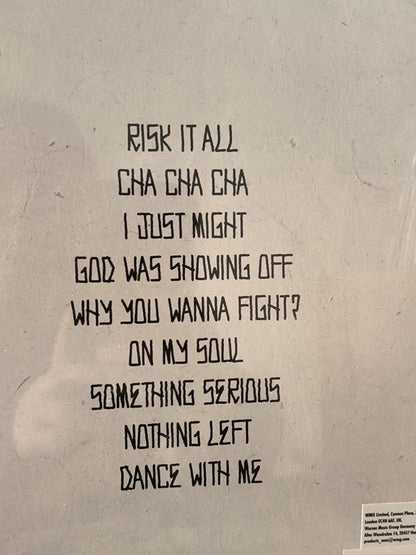 RISK IT ALL
CHA CHA CHA
I JUST MIGHT
GOD WAS SHOWING OFF
WHY YOU WANNA FIGHT?
ON MY SOUL
SOMETHING SERIOUS
NOTHING LEFT
DANCE WITH ME
WMIS Limited, Cannon Place,
London EC4N 6AF, UK.
Warner Music Group Germany
Alter Wandrahm 14, 20457
products_wmcs@wmg.com